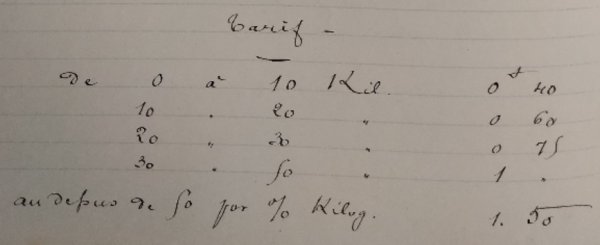 Tarif -
de 0 à 10 Kil. 0 f 40
10 " 20 " 0 60
20 " 30 " 0 75
30 " 50 " 1 "
au dessus de 50 par % Kilog. 1. 50